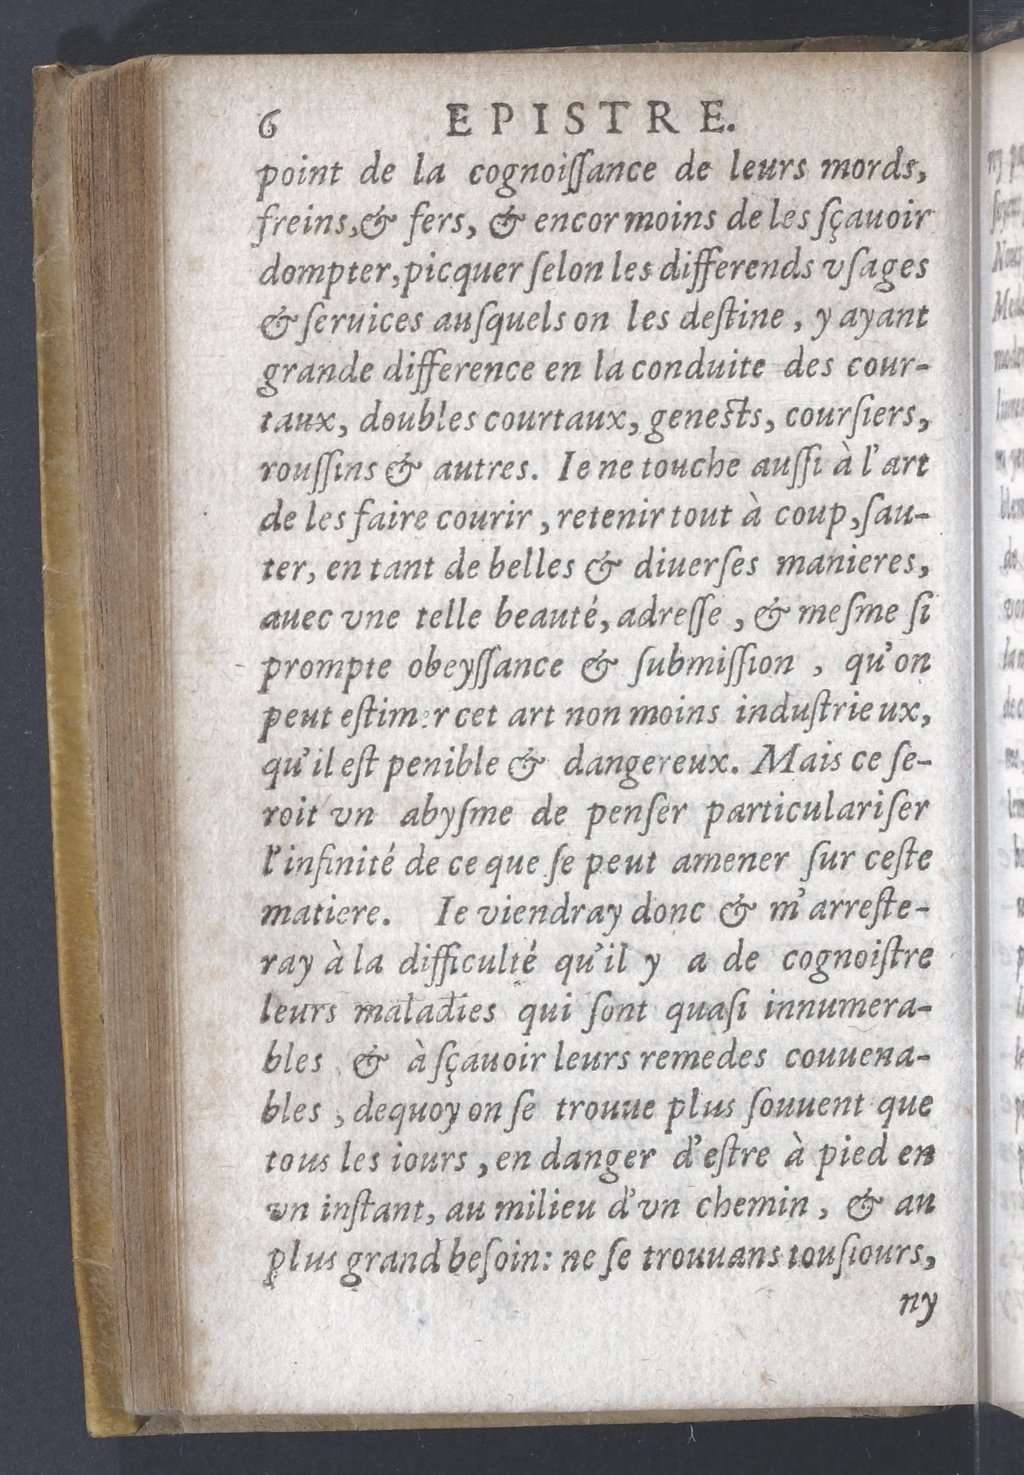 6 EPISTRE.
point de la cognoiſſance de leurs mords,
freins,& fers, & encor moins de les ſçauoir
dompter, picquer ſelon les differends vſages
& ſeruices auſquels on les deſtine, y ayant
grande difference en la conduite des cour-
taux, doubles courtaux, genests, courſiers,
rouſſins & autres. Ie ne touche auſſi à l'art
de les faire courir, retenir tout à coup, ſau-
ter, en tant de belles & diuerſes manieres,
auec vne telle beauté, adreſſe, & meſme ſi
prompte obeyſſance & ſubmiſſion, qu'on
peut eſtimer cet art non moins induſtrieux,
qu'il eſt penible & dangereux. Mais ce ſe-
roit vn abyſme de penſer particulariſer
l'infinité de ce que ſe peut amener ſur ceſte
matiere. Ie viendray donc & m'arreſte-
ray à la difficulté qu'il y a de cognoiſtre
leurs maladies qui ſont quaſi innumera-
bles & à ſçauoir leurs remedes couuena-
bles, dequoy on ſe trouue plus ſouuent que
tous les iours, en danger d'eſtre à pied en
vn inſtant, au milieu d'vn chemin, & au
plus grand beſoin: ne ſe trouuans touſiours,
ny